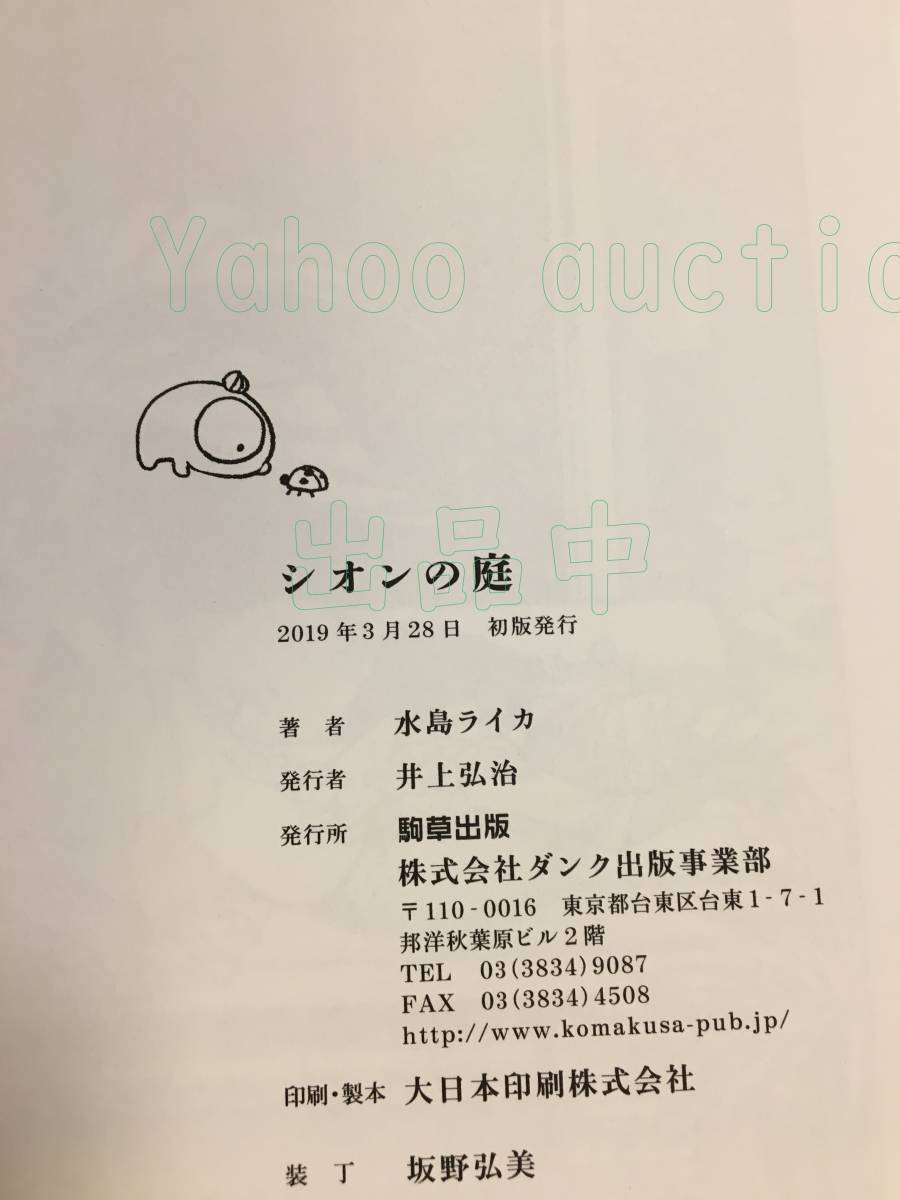 Yahoo auctio
出品中
シオンの庭
2019年3月28日　初版発行
著　者　水島ライカ
発行者　井上弘治
発行所　駒草出版
株式会社ダンク出版事業部
〒110-0016　東京都台東区台東1-7-1
邦洋秋葉原ビル2階
TEL　03(3834)9087
FAX　03(3834)4508
http://www.komakusa-pub.jp/
印刷・製本　大日本印刷株式会社
装　丁　坂野弘美